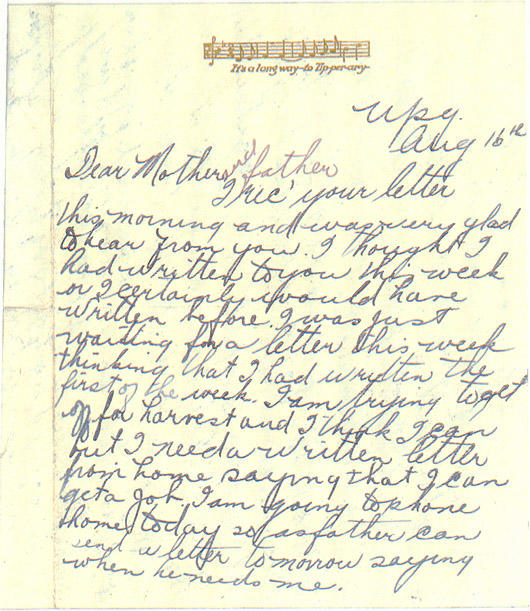 It's a long way to Tipperary
Wpg.
Aug 16th
Dear Mother and father
I rec' your letter
this morning and was very glad
to hear from you. I thought I
had written to you this week
or I certainly would have
written before. I was just
waiting for a letter this week
thinking that I had written the
first of the week. I am trying to get
off for harvest and I think I can
but I need a written letter
from home saying that I can
get a job. I am going to phone
home today so as father can
send a letter tomorrow saying
when he needs me.